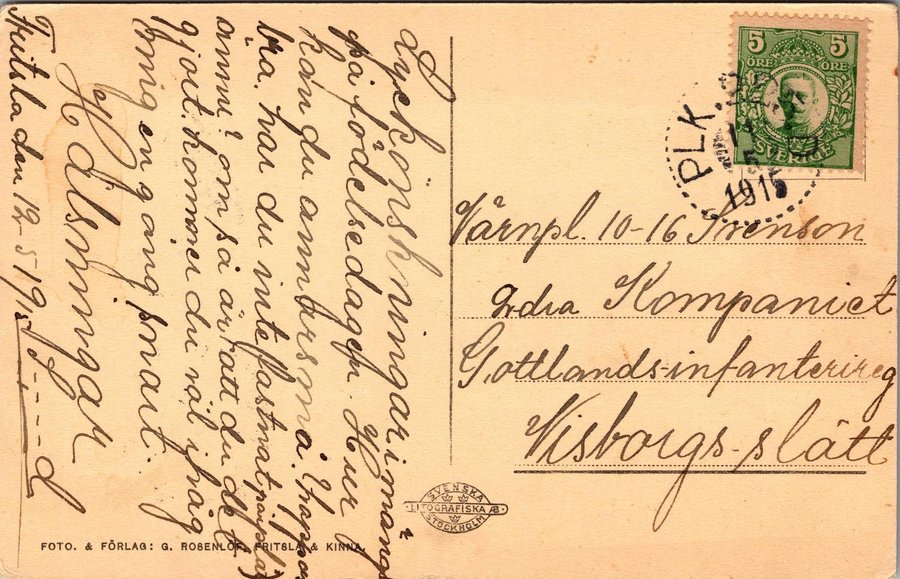 Fritsla den 12-5 1915
Lyckönskningar i mängd
på födelsedagen. Hur
kan du annars må. Hoppas
bra. har du inte fastnat på plåt
ännu? om så är, att du det
gjort, kommer du väl ihåg
mig en gång snart.
Hälsningar
J-----d
5 5
ÖRE ÖRE
SVERIGE
PLK.
5
1915
Värnpl. 10-16 Svenson
2-dra Kompaniet
Gottlands-infanterireg
Visborgs-slätt
SVENSKA
LITOGRAFISKA AB
STOCKHOLM
FOTO. & FÖRLAG: G. ROSENLÖF, FRITSLA & KINNA.